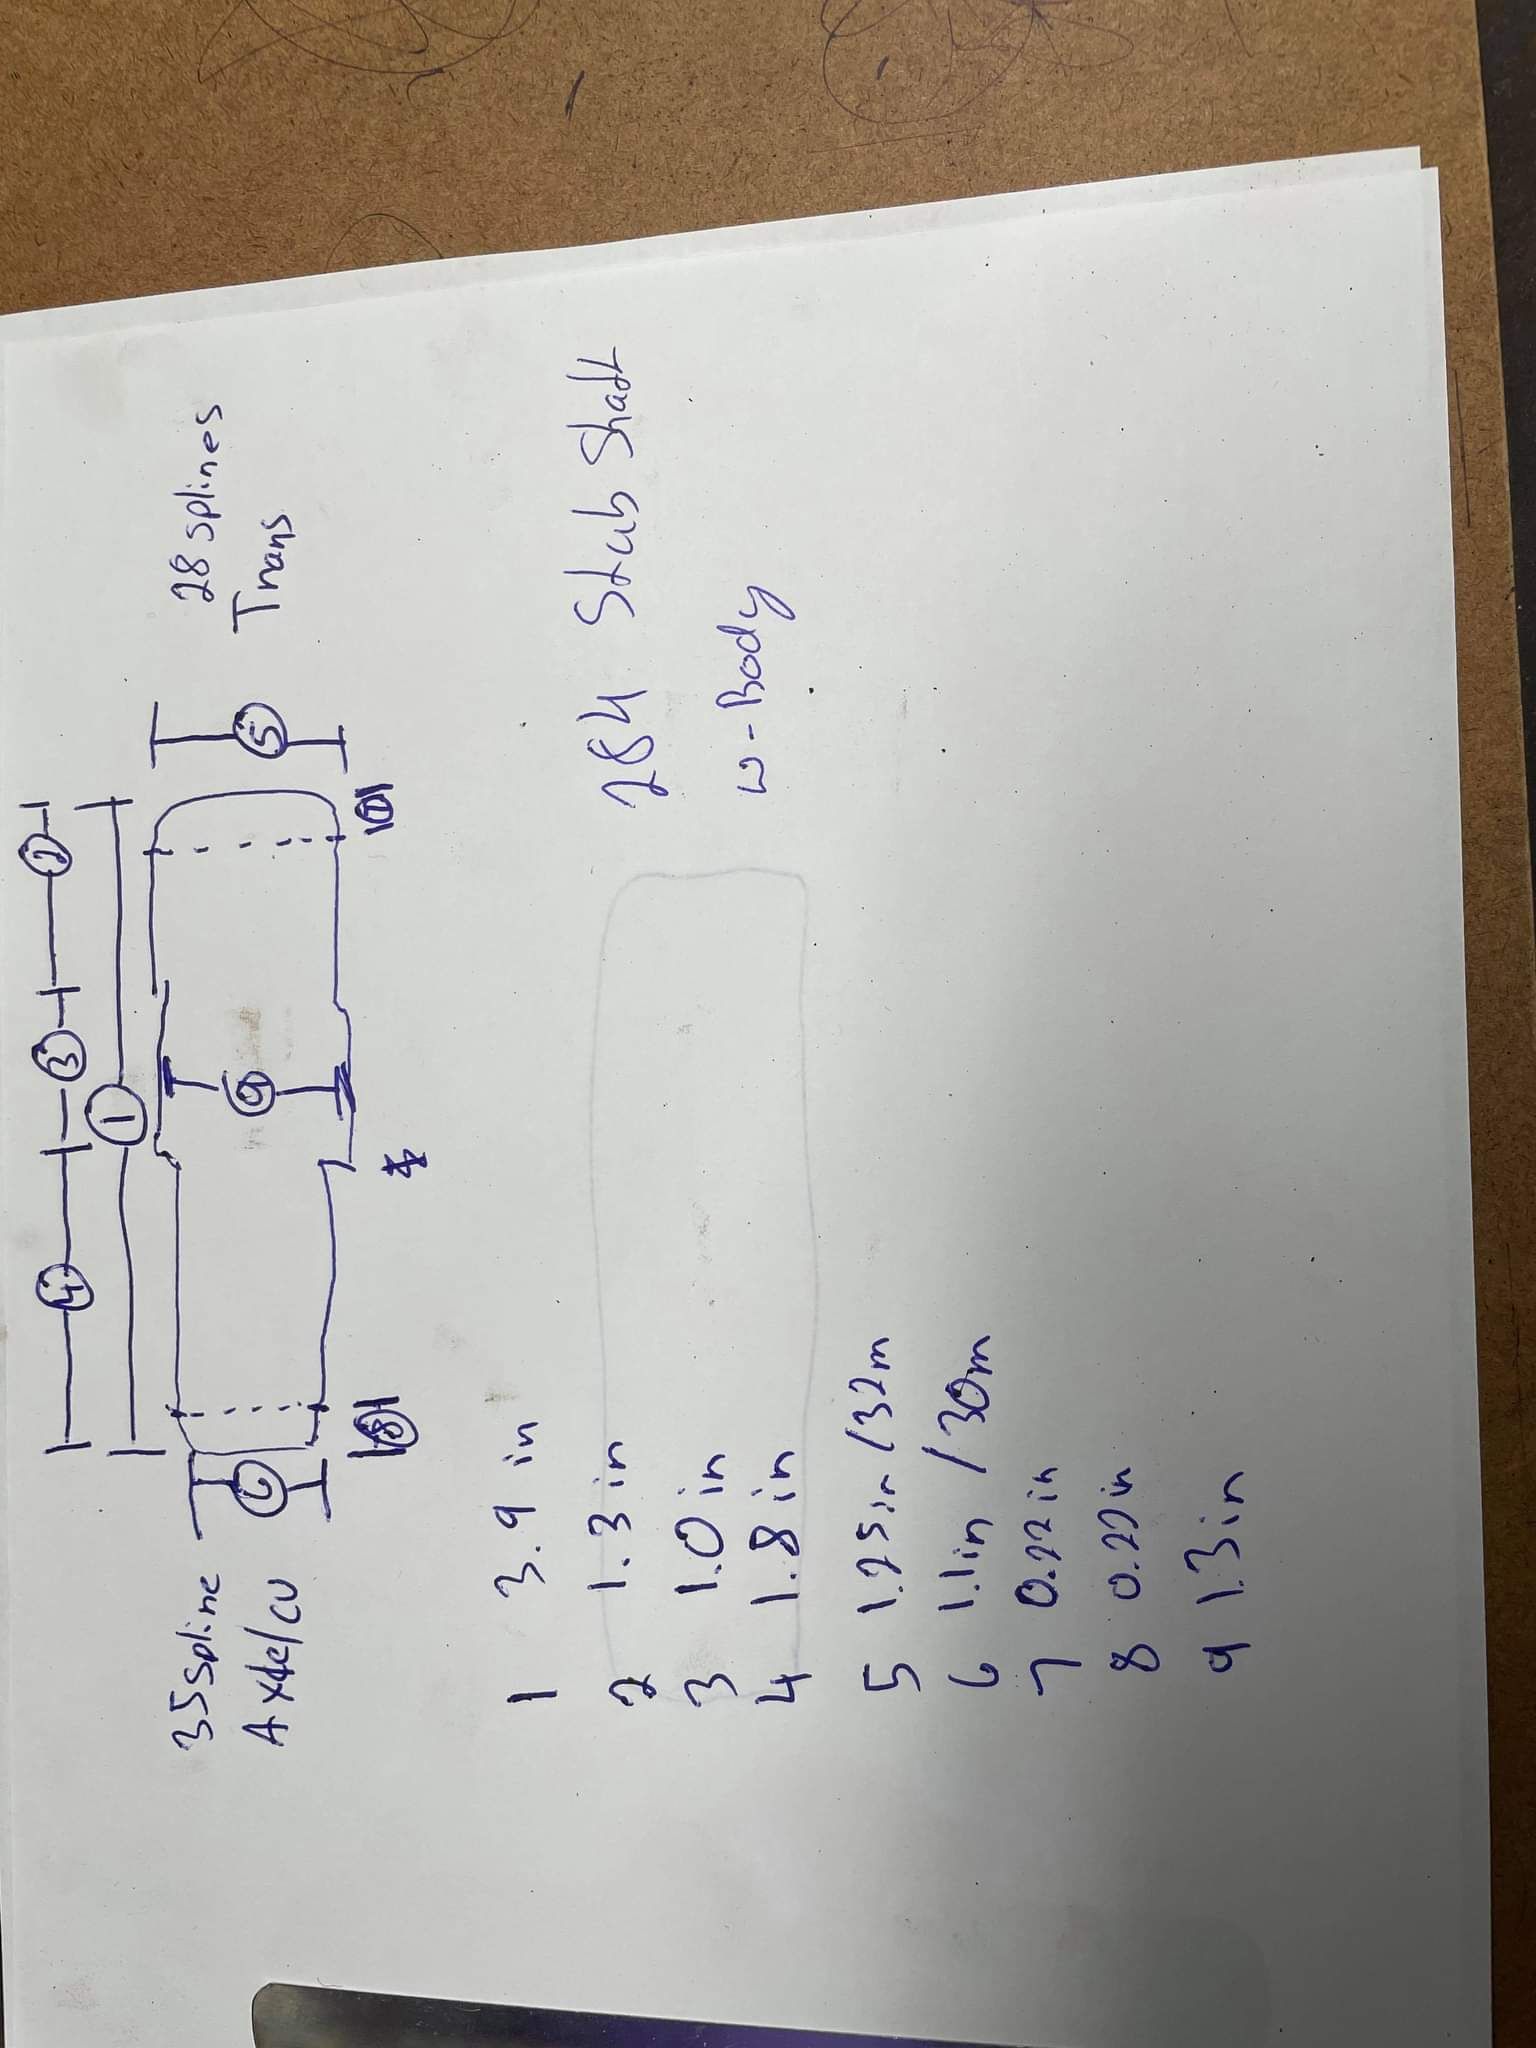 4
3
2
1
35 spline
Axle/CV
6
9
5
28 splines
Trans
8
*
284 Stub Shaft
W-Body
1 3.9 in
2 1.3 in
3 1.0 in
4 1.8 in
5 1.25in /32m
6 1.1in /30m
7 0.22 in
8 0.22in
9 1.3in